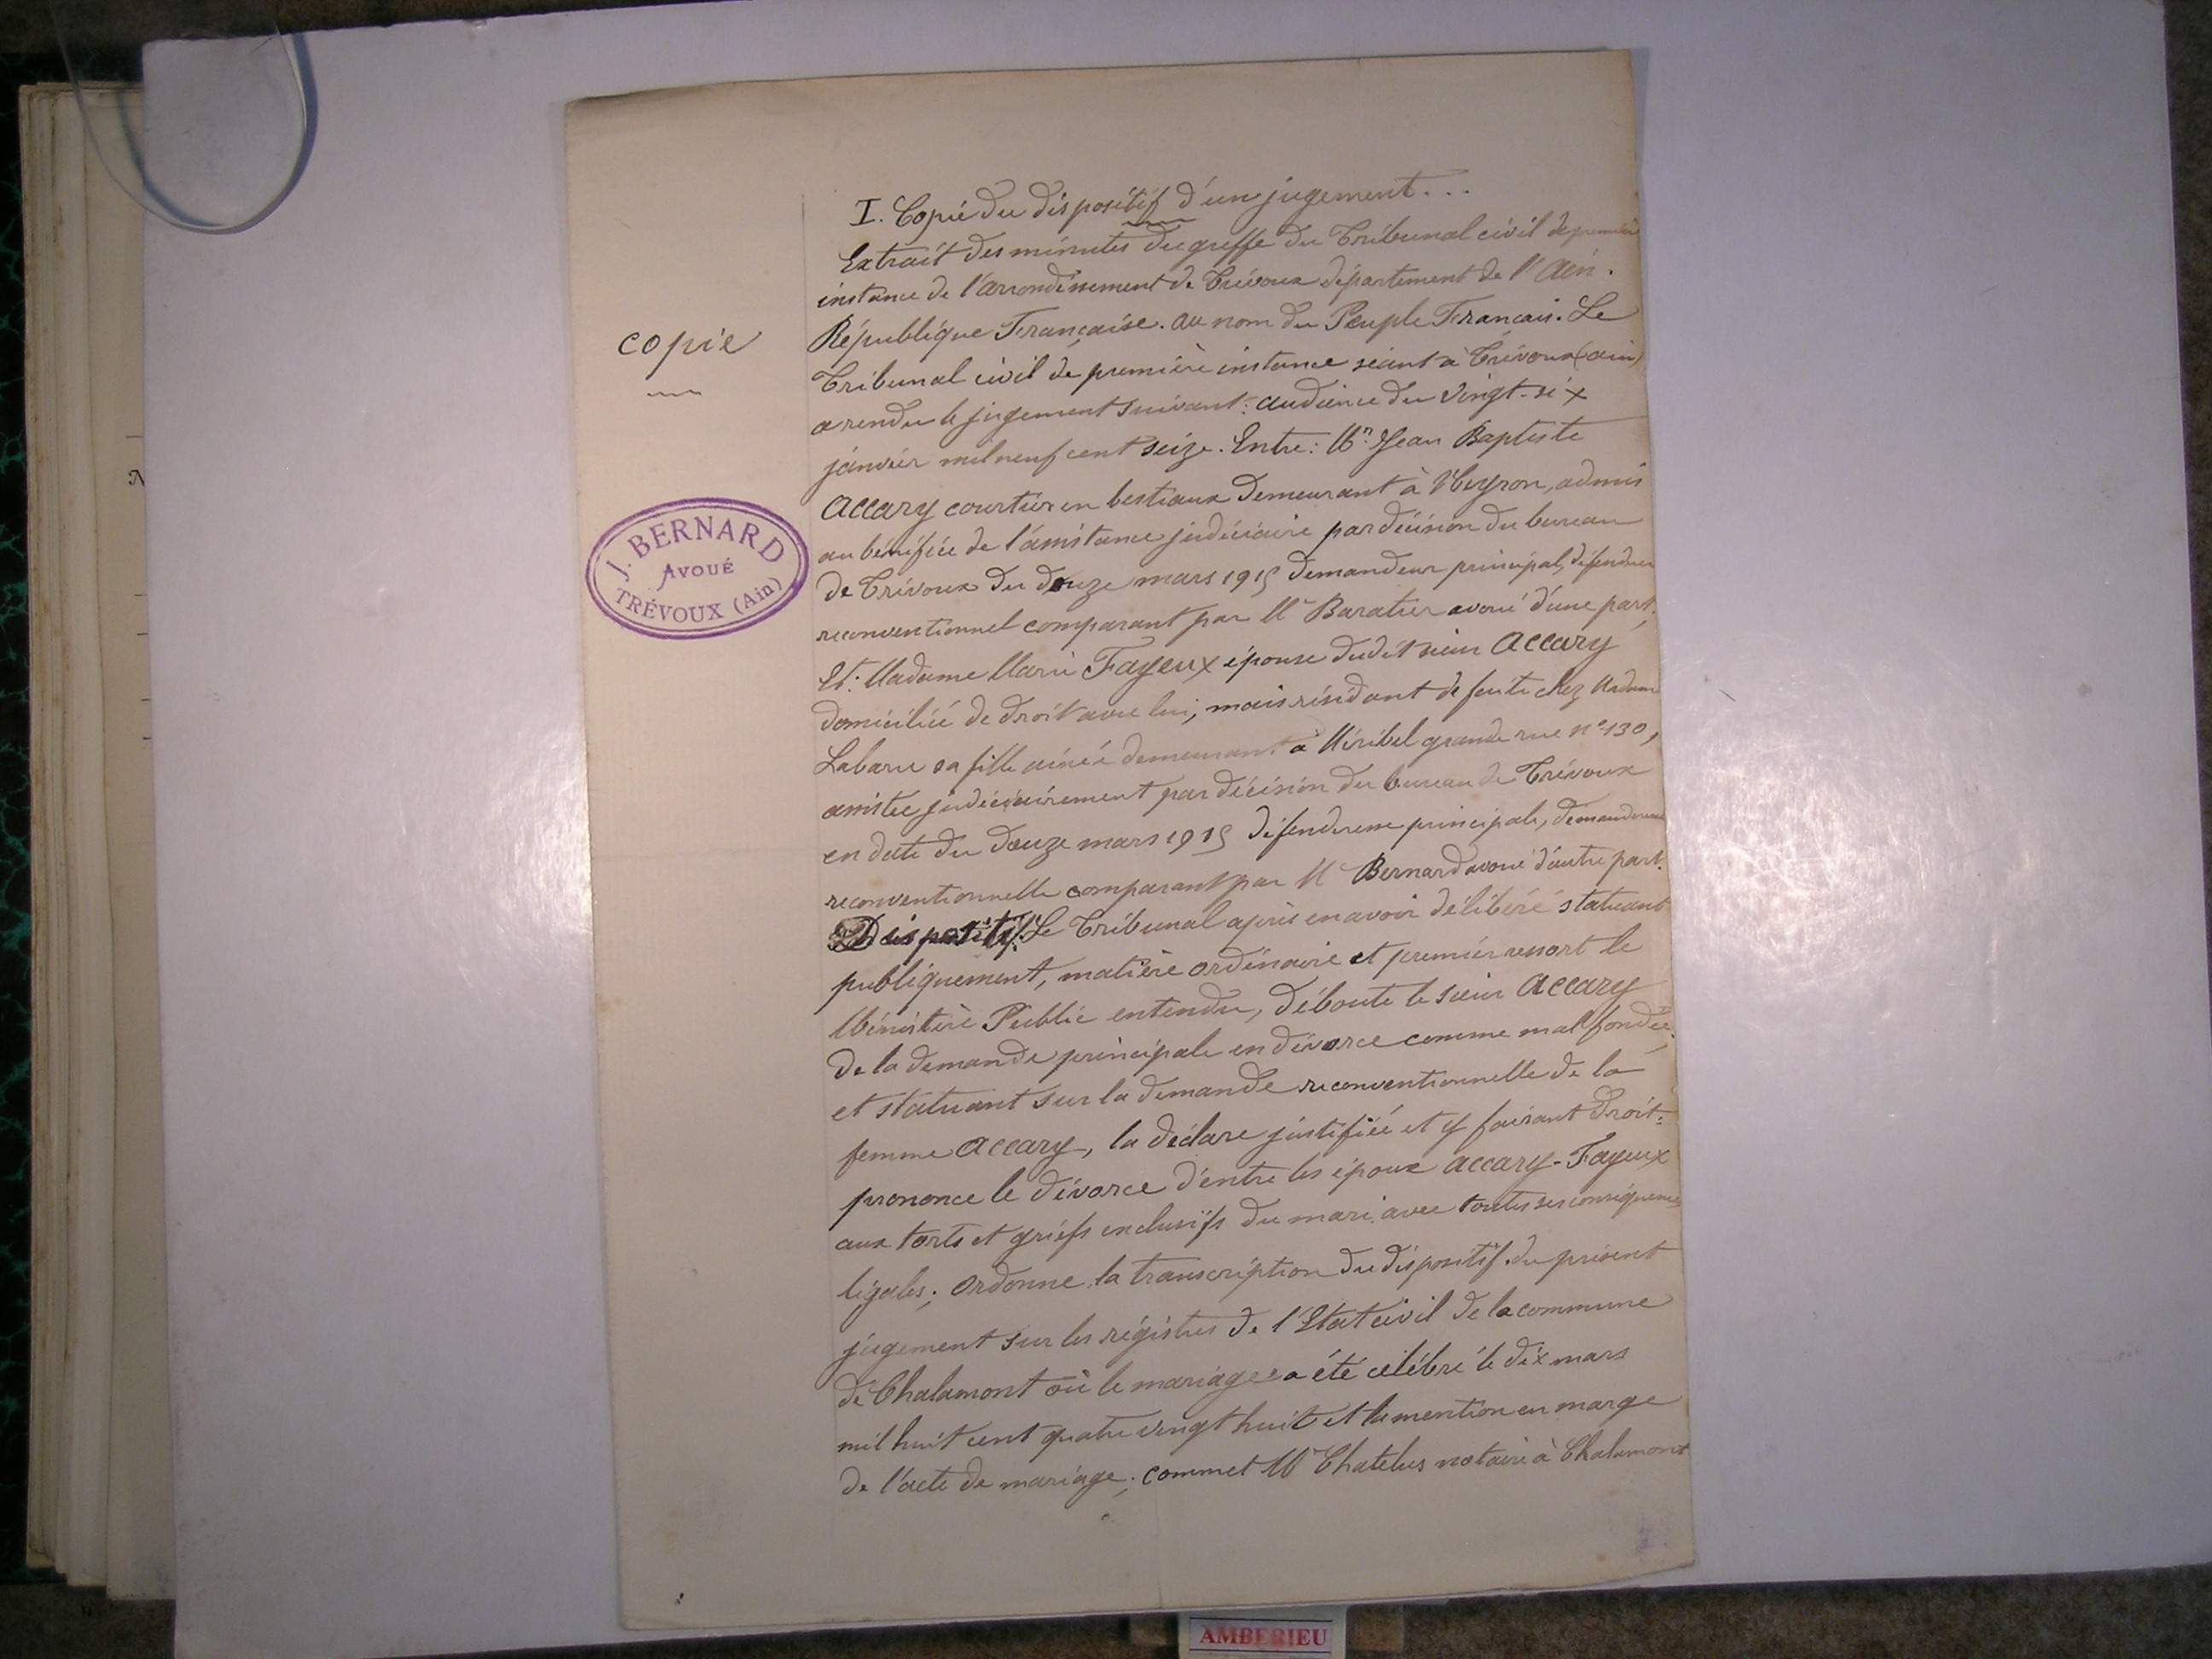 I. Copie du dispositif d'un jugement...
Extrait des minutes du greffe du Tribunal civil de première
instance de l'arrondissement de Trévoux département de l'Ain.
République Française. Au nom du Peuple Français. Le
copie
Tribunal civil de première instance séant à Trévoux (Ain)
a rendu le jugement suivant: audience du vingt-six
janvier mil neuf cent seize. Entre: Mr Jean Baptiste
Accary courtier en bestiaux demeurant à Neyron, admis
au bénéfice de l'assistance judiciaire par décision du bureau
J. BERNARD
AVOUÉ
TRÉVOUX (Ain)
de Trévoux du douze mars 1915 demandeur principal, défendeur
reconventionnel comparant par Me Baratier avoué d'une part,
Et: Madame Marie Fayeux épouse dudit sieur Accary
domiciliée de droit avec lui, mais résidant de faite chez Madame
sa fille ainée demeurant à Miribel grande rue n° 130,
assistée judiciairement par décision du bureau de Trévoux
en date du douze mars 1915 défenderesse principale, demanderesse
reconventionnelle comparant par Me Bernard avoué d'autre part.
Dispositif: Le Tribunal après en avoir délibéré statuant
publiquement, matière ordinaire et premier ressort le
Ministère Public entendu, déboute le sieur Accary
de la demande principale en divorce comme mal fondée,
et statuant sur la demande reconventionnelle de la
femme Accary, la déclare justifiée et y faisant droit:
prononce le divorce d'entre les époux Accary-Fayeux
aux torts et griefs exclusifs du mari avec toutes ses conséquences
légales; Ordonne la transcription du dispositif du présent
jugement sur les régistres de l'Etat civil de la commune
de Chalamont où le mariage a été célébré le dix mars
mil huit cent quatre vingt huit et la mention en marge
de l'acte de mariage; commet Me Chatelus notaire à Chalamont
AMBERIEU